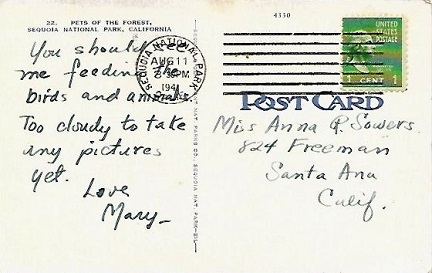 22. PETS OF THE FOREST,
SEQUOIA NATIONAL PARK, CALIFORNIA
4330
You should
me feeding the
birds and animals
Too cloudy to take
any pictures
yet.
Love
Mary-
SEQUOIA NATIONAL PARK
AUG 11
PM
UNITED STATES
POSTAGE
1 CENT 1
POST CARD
Miss Anna R. Sowers.
824 Freeman
Santa Ana
Calif.